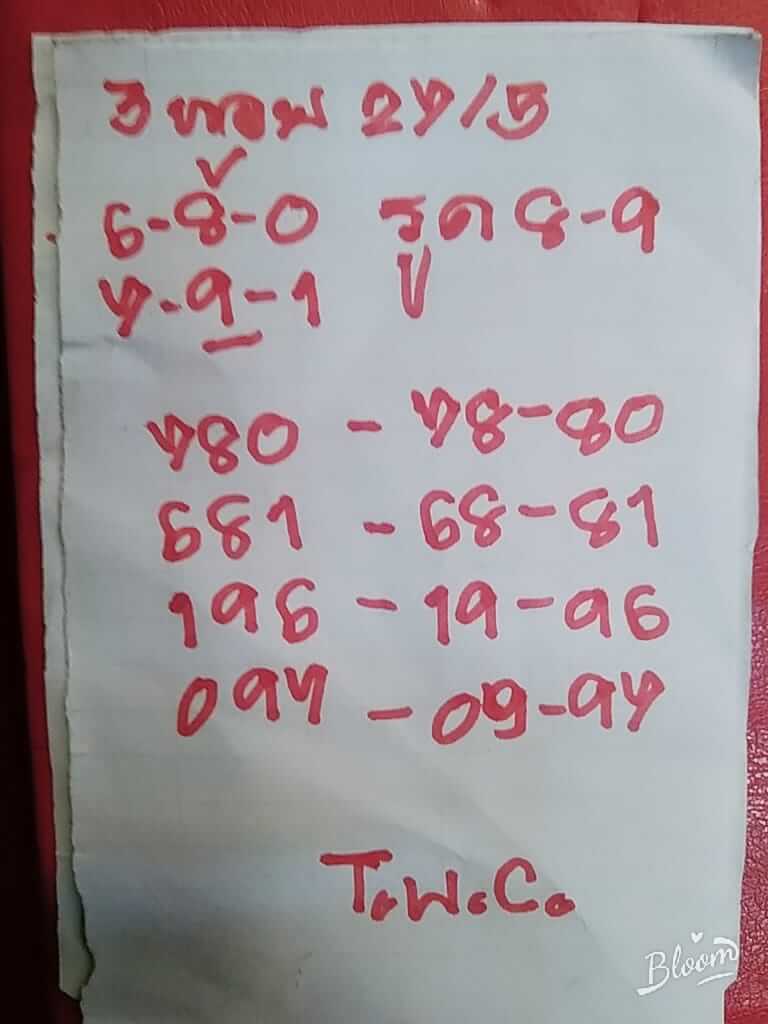 3 ทอพ 27/5
6-8-0 รูด 8-9
7-9-1
780 - 78-80
681 - 68-81
196 - 19-96
097 - 09-97
T.W.C.
Bloom